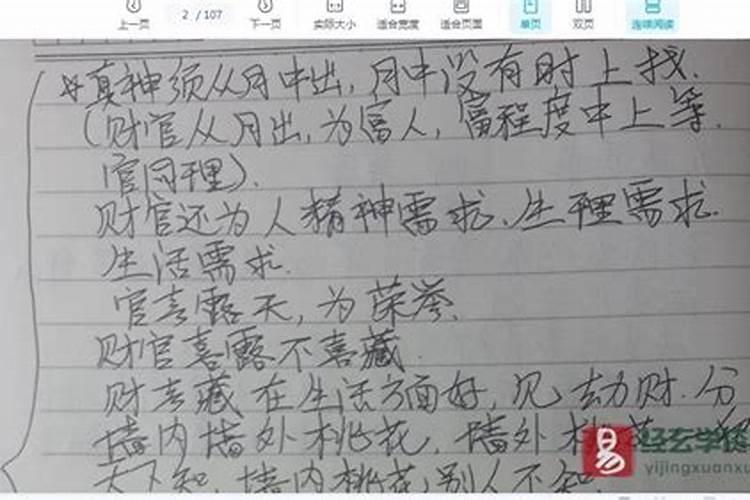 上一页 2 / 107 下一页 实际大小 适合宽度 适合页面 单页 双页 连续阅读
真神须从月中出，月中没有时上找.
（财官从月出，为富人，富程度中上等.
官同理）.
财官还为人精神需求、生理需求.
生活需求.
官喜露天，为荣誉.
财官喜露不喜藏.
财喜藏在生活方面好，见劫财.分
墙内墙外桃花，墙外桃
天下知，墙内桃花，别人不知
易 经玄学
yijingxuanxu